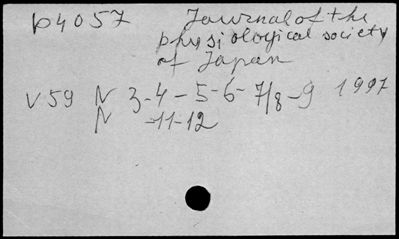 p4057 Journal of the
physiological society
of Japan
V59 N 3-4-5-6-7/8-9 1997
N -11-12